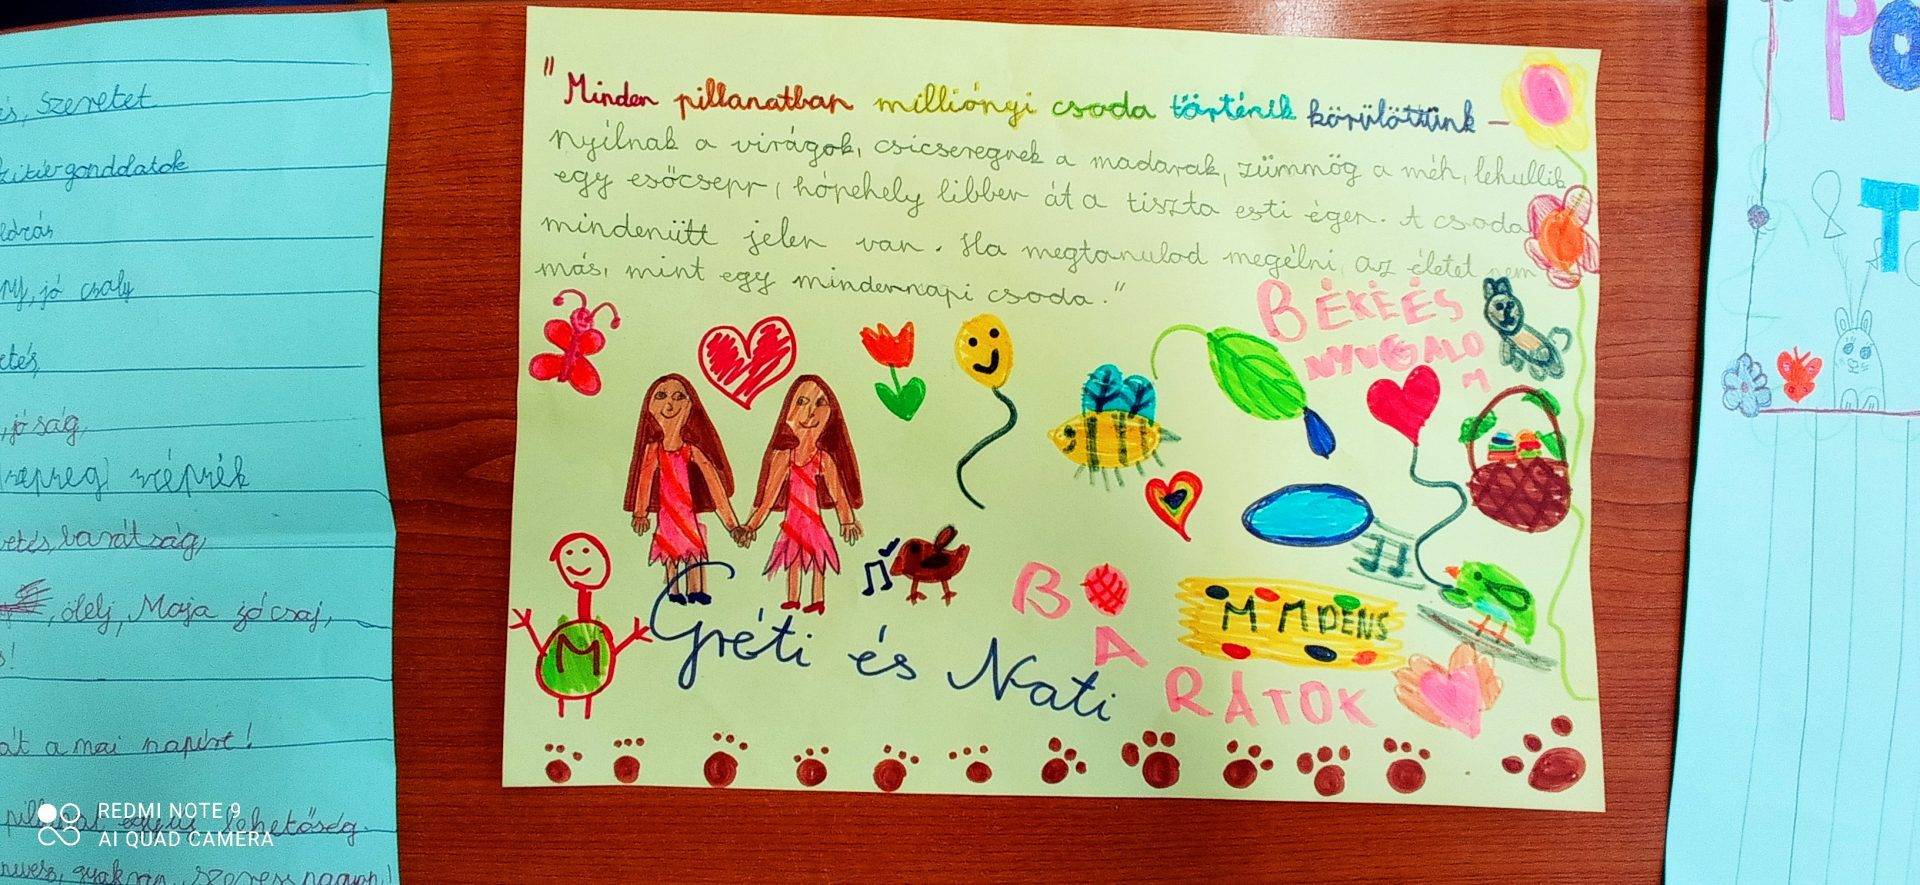 és, Szeretet
gondolatok
jó csaly
jóság,
szépség
barátság,
ölelj, Maja jó csaj,
át a mai napért!
lehetőség.
gyakran, szeress nagyon!
"Minden pillanatban milliónyi csoda történik körülöttünk –
Nyílnak a virágok, csicseregnek a madarak, zümmög a méh, lehullik
egy esőcsepp, hópehely libben át a tiszta esti égen. A csoda
mindenütt jelen van. Ha megtanulod megélni, az életet nem
más, mint egy mindennapi csoda."
BÉKE ÉS
NYUGALO
M
M
Gréti és Nati
B A
RÁTOK
MINDENS
PO
T
REDMI NOTE 9
AI QUAD CAMERA